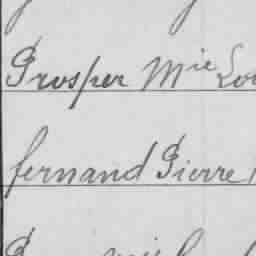 Prosper Mie Lou
fernand Pierre